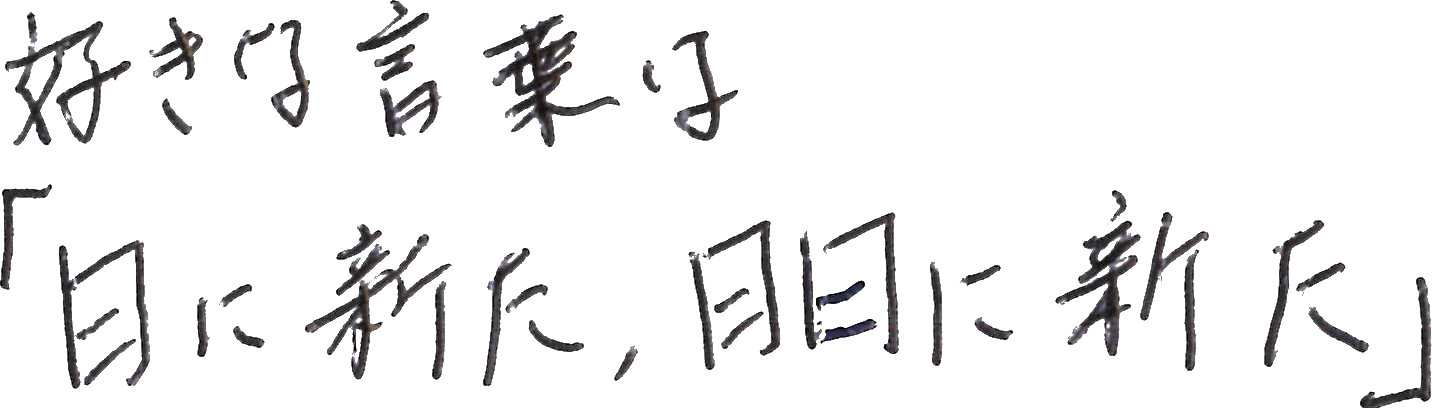 好きな言葉は
「日に新た,日日に新た」